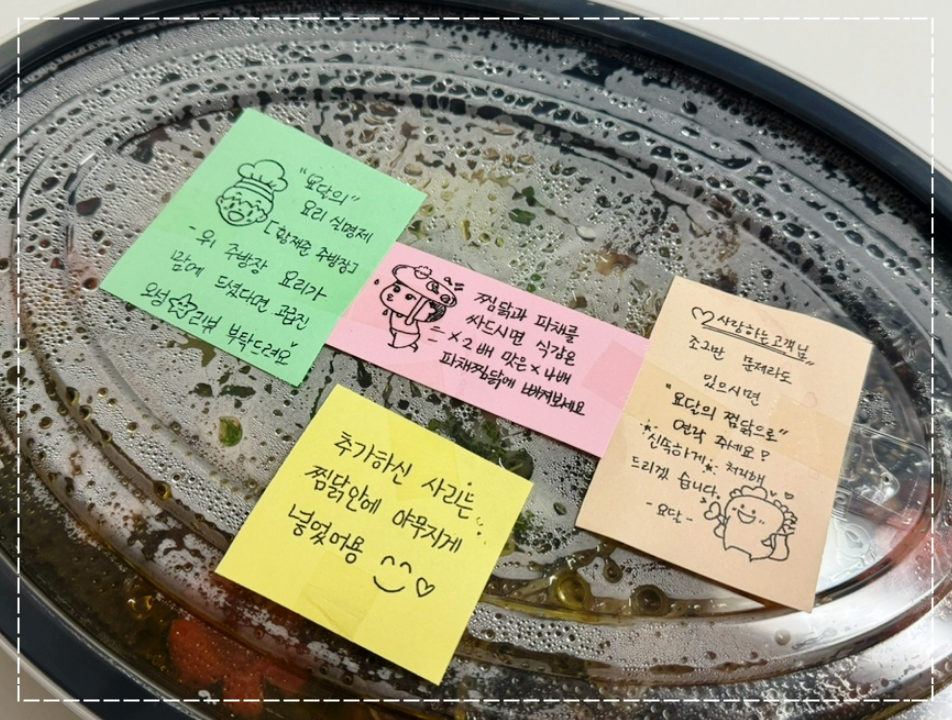 "요달의"
요리 실명제
[황재준 주방장]
-위 주방장 요리가
맘에 드셨다면 고급진
오성 리뷰 부탁드려요
찜닭과 파채를
싸드시면 식감은
×2배 맛은×4배
파채찜닭에 빠져보세요
추가하신 사리는
찜닭안에 야무지게
넣었어용
사랑하는고객님
조그만 문제라도
있으시면
"요달의 찜닭으로"
연락 주세요!
신뜩하게 처리해
드리겠 습니다.
-요달-